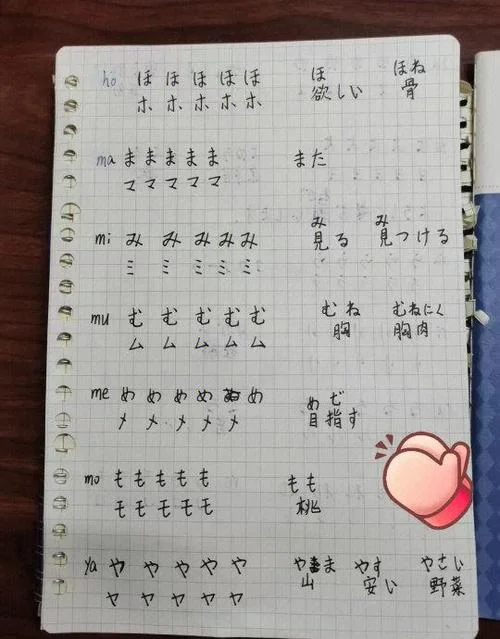 ho ほ ほ ほ ほ ほ ほ ほね
ホ ホ ホ ホ ホ 欲しい 骨
ma ま ま ま ま ま また
マ マ マ マ マ
み み
mi み み み み み 見る 見つける
ミ ミ ミ ミ ミ
mu む む む む む むね むねにく
ム ム ム ム ム 胸 胸肉
me め め め め め め ざ
メ メ メ メ メ 目指す
mo も も も も も もも
モ モ モ モ モ 桃
ya や や や や や やま やす やさい
ヤ ヤ ヤ ヤ ヤ 山 安い 野菜